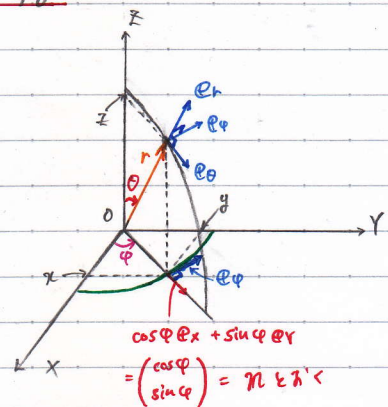 Z
z
r
𝕖r
𝕖φ
𝕖θ
θ
O
y
Y
φ
x
𝕖φ
X
cosφ 𝕖x + sinφ 𝕖Y
= (cosφ
sinφ) = 𝕟 とおく